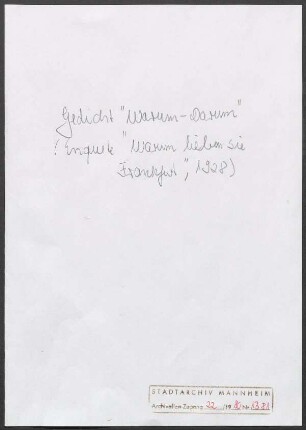 Gedicht "Warum-Darum"
(Enquete "Warum lieben sie
Frankfurt", 1928)
STADTARCHIV MANNHEIM
Archivalien-Zugang 22 /19 80 Nr.